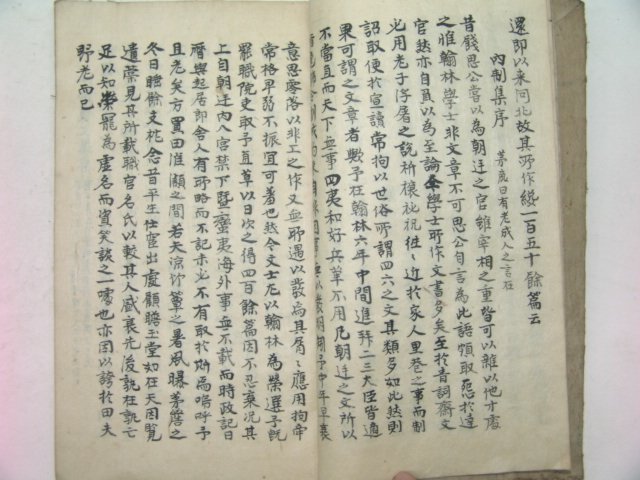 還即以来河北故其所作纔一百五十餘篇云
內制集序 茅鹿曰有老成人之言在
昔錢思公嘗以為朝廷之官雖宰相之重皆可雜以他才處
之惟翰林學士非文章不可思公自言為此語頗取怒於達
官然亦自負以為至論今學士所作文書多矣至於青詞齋文
必用老子浮屠之說祈禳祕祝往〻近於家人里巷之事而制
詔取便於宣讀常拘以世俗所謂四六之文其類多如此然則
果可謂之文章者歟予在翰林六年中間進拜二三大臣皆適
不當直而天下無事四夷和好兵革不用凡朝廷之文所以
自非因事無以發明矧予中年早衰
意思零落以非工之作又無所遇以發焉其屑〻應用拘牽
常格早弱不振宜可羞也然今文士尤以翰林為榮選予既
罷職院吏取予直草以日次之得四百餘篇因不忍棄况其
上自朝廷內及宮禁下暨蠻夷海外事無不載而時政記日
曆與起居郎舍人有所略而不記未必不有取於斯焉嗚呼予
且老矣方買田淮潁之間若夫涼竹簟之暑風曝茅簷之
冬日睡餘支枕念昔平生仕宦出處顧瞻玉堂如在天因覽
遺藁見其所載職官名氏以較其人盛衰先後孰在孰亡
足以知榮寵為虛名而資笑談之一噱也亦因以誇於田夫
野老而已